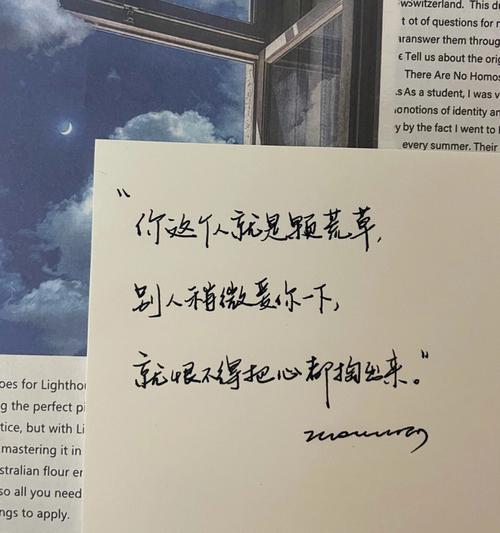 wswitzerland. This d
t ot of questions for r
aranswer them throug
Tell us about the orig
There Are No Homos
As a student, I was v
onotions of identity an
y by the fact I went to
every summer. Their
“你这个人就是颗荒草,
别人稍微爱你一下,
就恨不得把心都掏出来。”
oes for Lightho
g the perfect pi
tice, but with Li
mastering it in
stralian flour er
so all you need
ngs to apply.